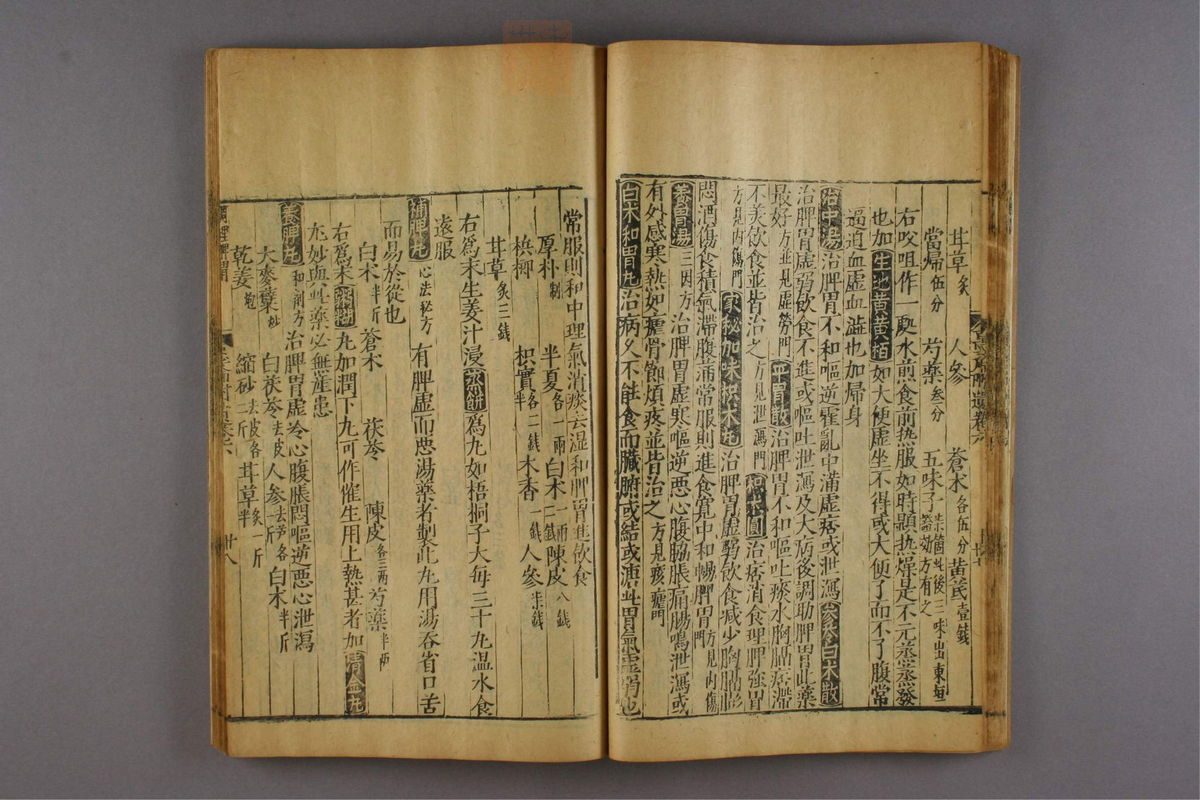 甘草炙 人參 蒼朮各伍分 黃芪壹錢
當歸伍分 芍藥叁分 五味子 後三味出東垣
右㕮咀作一服水煎食前热服如時顯热燥是不元蒸蒸發
也加生地黃黃栢如大便虛坐不得或大便了而不了腹常
逼迫血虛血澁也加歸身
治中湯治脾胃不和嘔逆霍亂中滿虛痞或泄瀉參苓白朮散
治脾胃虛弱飲食不進或嘔吐泄瀉及大病後調助脾胃此藥
最好方並見虛勞門平胃散治脾胃不和嘔吐痰水胸膈痞滯
不美飲食並皆治之方見泄瀉門枳朮圓治痞消食理脾強胃
方見內傷門家秘加味枳朮丸治脾胃虛弱飲食减少胸膈膨
悶酒傷食積氣滯腹滿常服則進食寬中和暢脾胃方見內傷門
養胃湯三因方治脾胃虛寒嘔逆惡心腹脇脹痛腸鳴泄瀉或
有外感寒熱如瘧骨節煩疼並皆治之方見痎瘧門
白朮和胃丸治病久不能食而臟腑或結或溏此胃氣虛弱也
常服則和中理氣消痰去湿和脾胃進飲食
厚朴制 半夏各一兩 白朮一兩二錢 陳皮八錢
梹榔 枳實各二錢半 木香一錢 人參半錢
甘草炙三錢
右爲末生姜汁浸蒸餅爲丸如梧桐子大每三十丸温水食
遠服
補脾丸心法秘方 有脾虛而惡湯藥者製此丸用湯吞省口苦
而易於從也
白朮半斤 蒼朮 茯苓 陳皮各三兩 芍藥半兩
右爲末粥糊丸加潤下丸可作催生用上熱甚者加清金丸
尤妙與此藥必無産患
養脾丸和劑方治脾胃虛冷心腹脹悶嘔逆惡心泄瀉
大麥蘖炒 白茯苓去皮 人參去芦各一斤 白朮半斤
乾姜炮 縮砂去皮各二斤 甘草炙一斤半
廿八